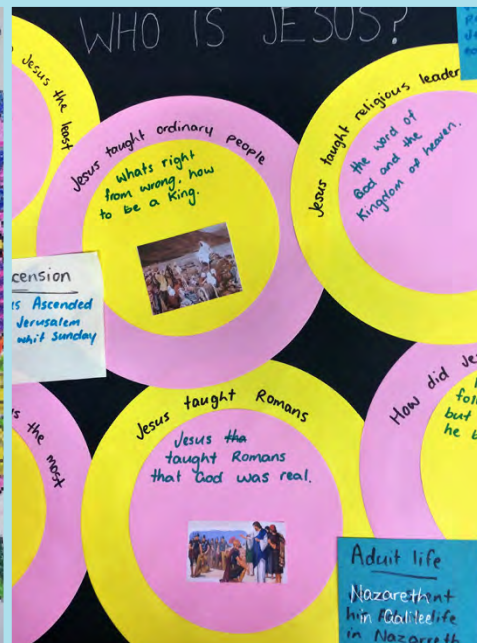 WHO IS JESUS?
Jesus the least
Jesus taught ordinary people
Whats right
from wrong, how
to be a King.
Jesus taught religious leader
the word of
God and the
Kingdom of heaven.
cension
is Ascended
Jerusalem
whit Sunday
is the most
Jesus taught Romans
Jesus tha
taught Romans
that God was real.
How did Je
foll
but
he b
Aduit life
Nazareth
in Galilee
life
in Nazareth